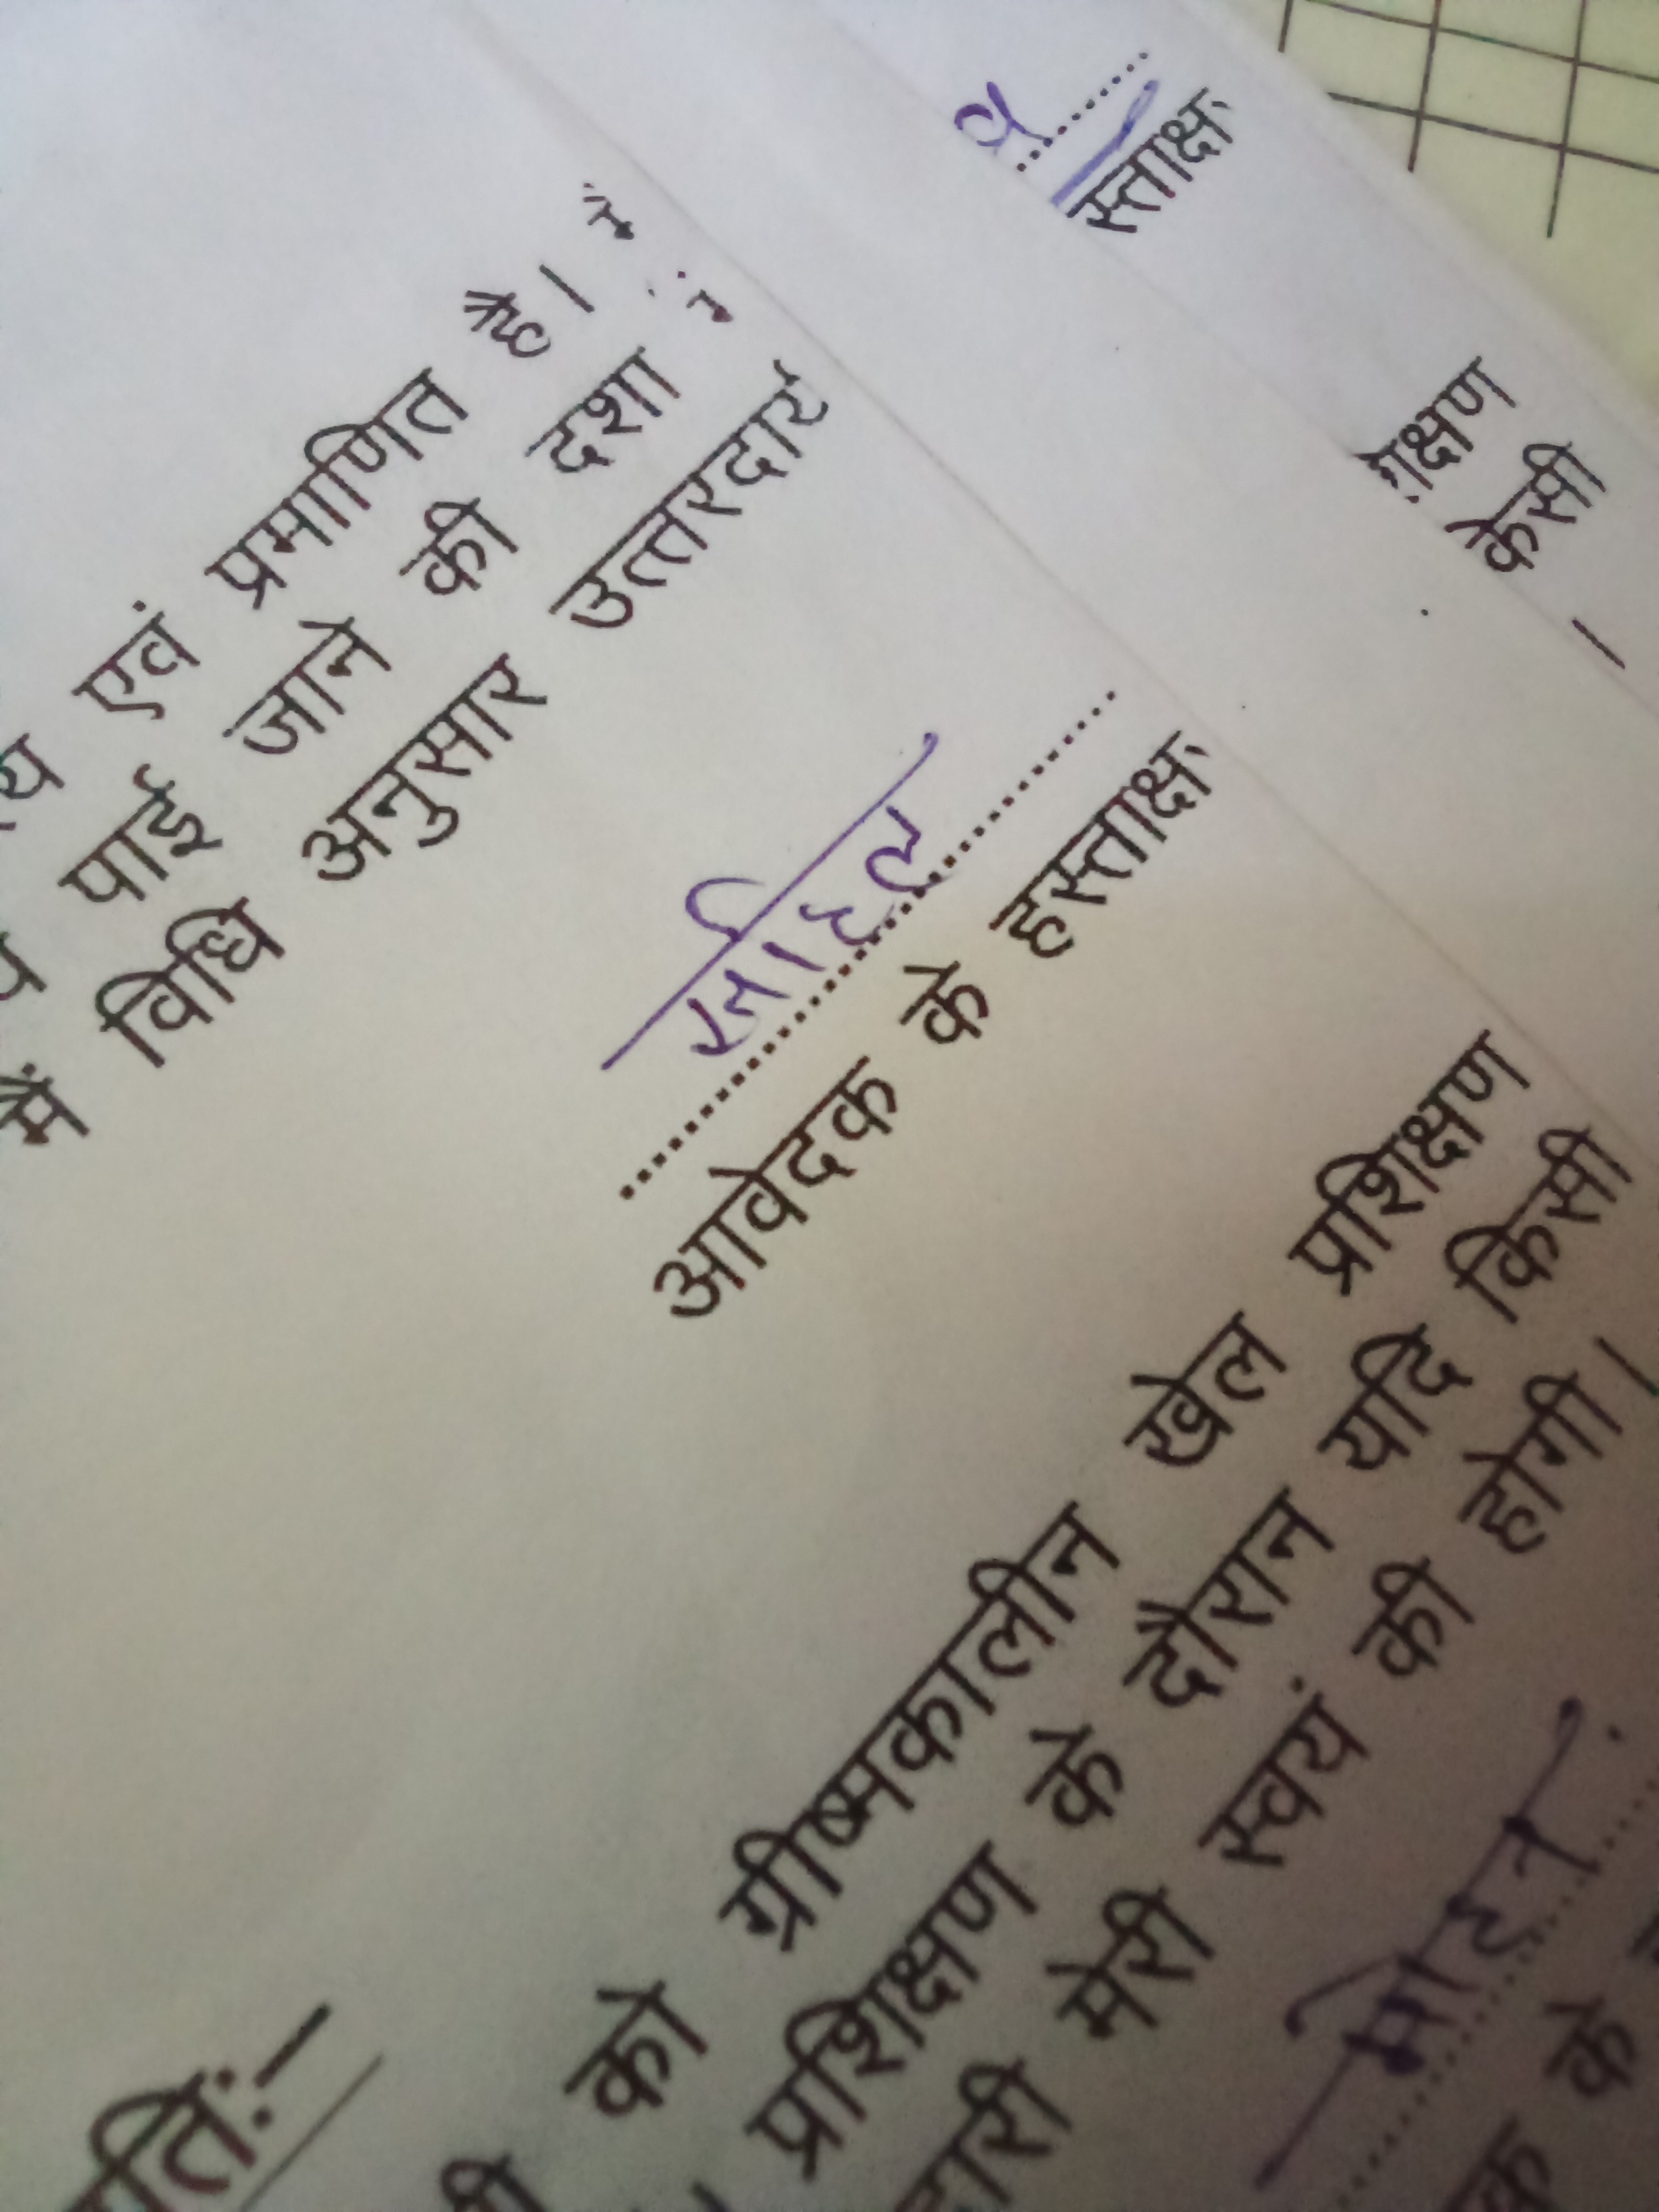 एवं प्रमाणित है।
पाई जाने की दशा
में विधि अनुसार उत्तरदा
साहिल
आवेदक के हस्ताक्ष
को ग्रीष्मकालीन खेल प्रशिक्षण
प्रशिक्षण के दौरान यदि किसी
मेरी स्वयं की होगी।
मोहन
के
स्ताक्ष
क्षण